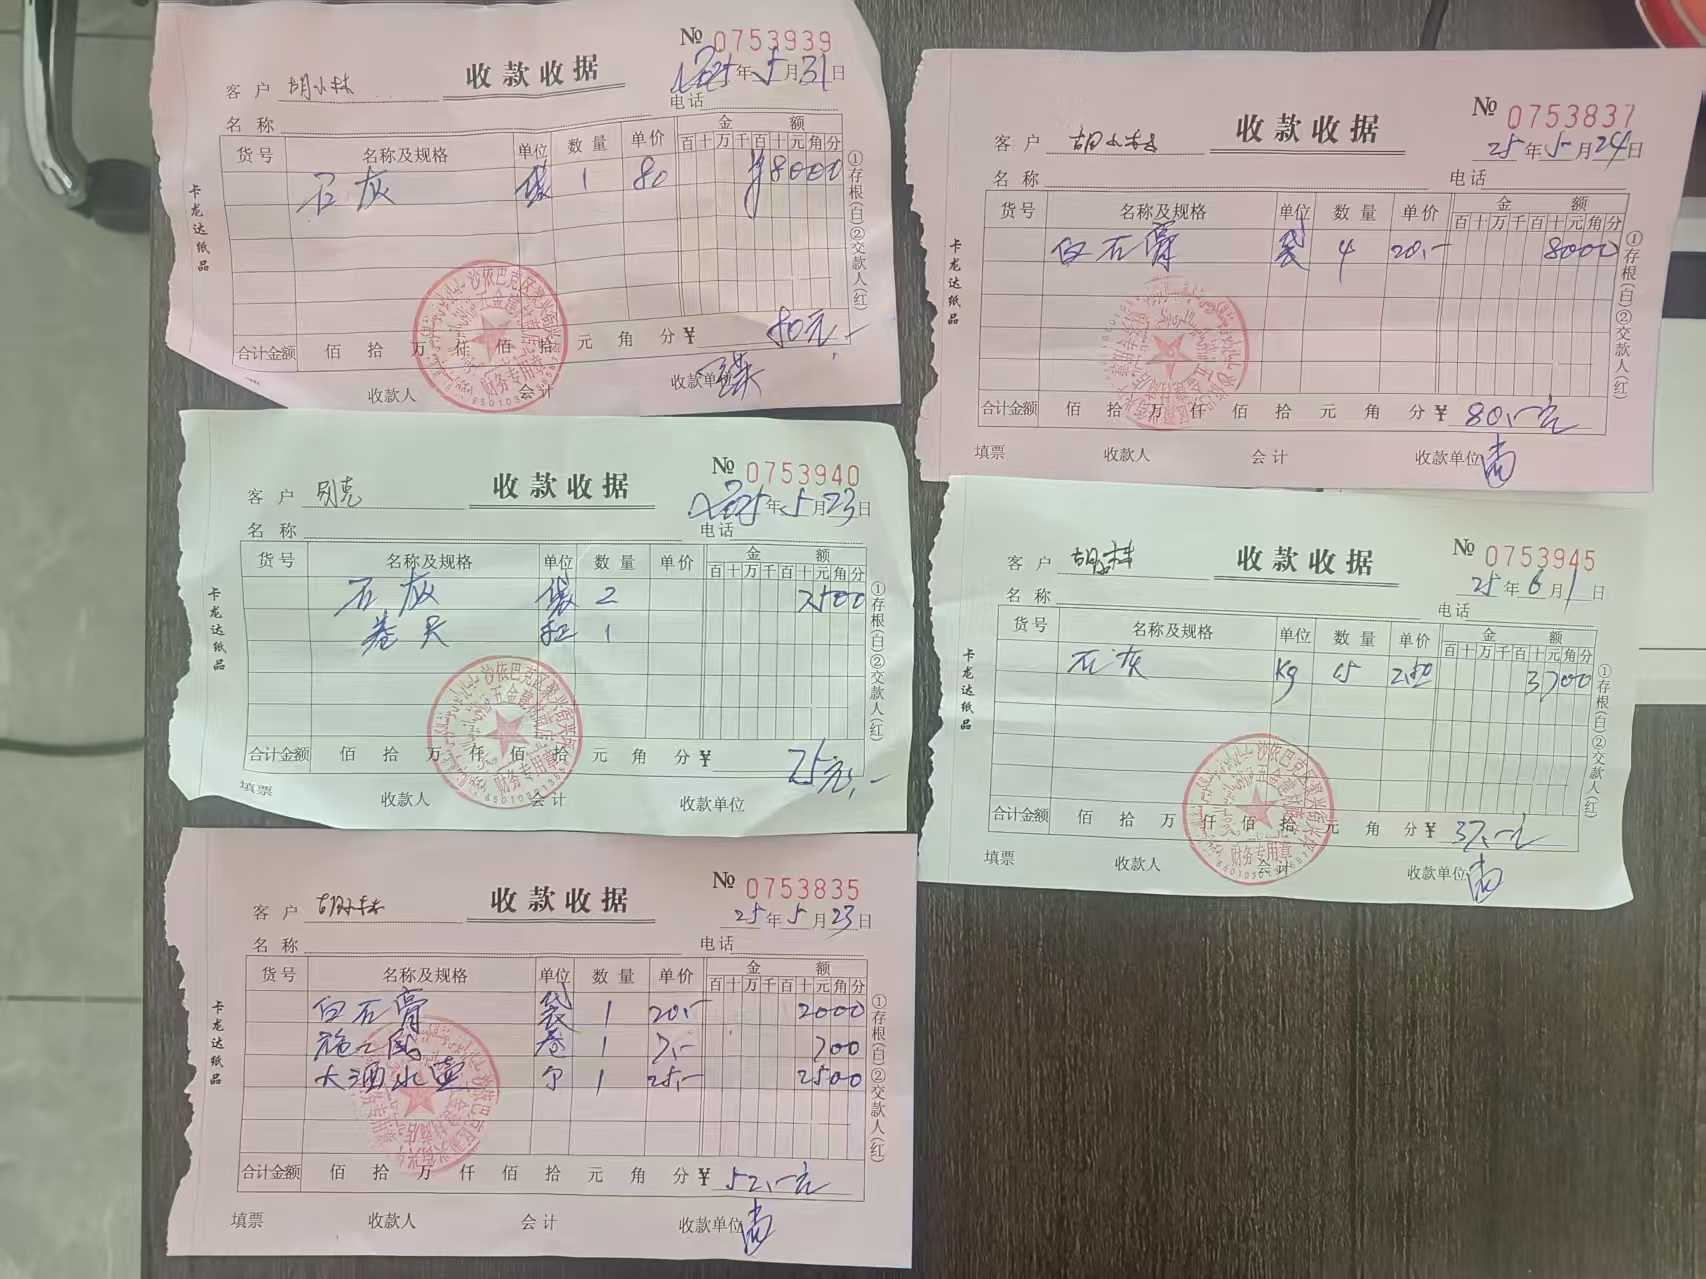 № 0753939
收款收据
2025年5月31日
客户 胡小林
电话
名称
货号 名称及规格 单位 数量 单价 金额
百十万千百十元角分
石灰 袋 1 80 ¥8000
合计金额 佰 拾 万 仟 佰 拾 元 角 分 ¥ 80元
收款人 会计 收款单位
①存根(白)②交款人(红)
卡龙达纸品
№ 0753940
收款收据
2025年5月23日
客户
电话
名称
货号 名称及规格 单位 数量 单价 金额
百十万千百十元角分
石灰 袋 2 2500
卷尺 1
合计金额 佰 拾 万 仟 佰 拾 元 角 分 ¥ 25元
填票 收款人 会计 收款单位
①存根(白)②交款人(红)
卡龙达纸品
财务专用章
№ 0753835
收款收据
25年5月23日
客户 胡小林
电话
名称
货号 名称及规格 单位 数量 单价 金额
百十万千百十元角分
白石膏 袋 1 20.- 2000
卷 1 7.- 700
大洒水壶 个 1 25.- 2500
合计金额 佰 拾 万 仟 佰 拾 元 角 分 ¥ 52.-元
填票 收款人 会计 收款单位
①存根(白)②交款人(红)
卡龙达纸品
№ 0753837
收款收据
25年5月24日
客户 胡小林
电话
名称
货号 名称及规格 单位 数量 单价 金额
百十万千百十元角分
白石膏 袋 4 20.- 8000
合计金额 佰 拾 万 仟 佰 拾 元 角 分 ¥ 80.-元
填票 收款人 会计 收款单位
①存根(白)②交款人(红)
卡龙达纸品
№ 0753945
收款收据
25年6月1日
客户 胡小林
电话
名称
货号 名称及规格 单位 数量 单价 金额
百十万千百十元角分
石灰 kg 15 2.50 3700
合计金额 佰 拾 万 仟 佰 拾 元 角 分 ¥ 37.-元
填票 收款人 会计 收款单位
①存根(白)②交款人(红)
卡龙达纸品
财务专用章